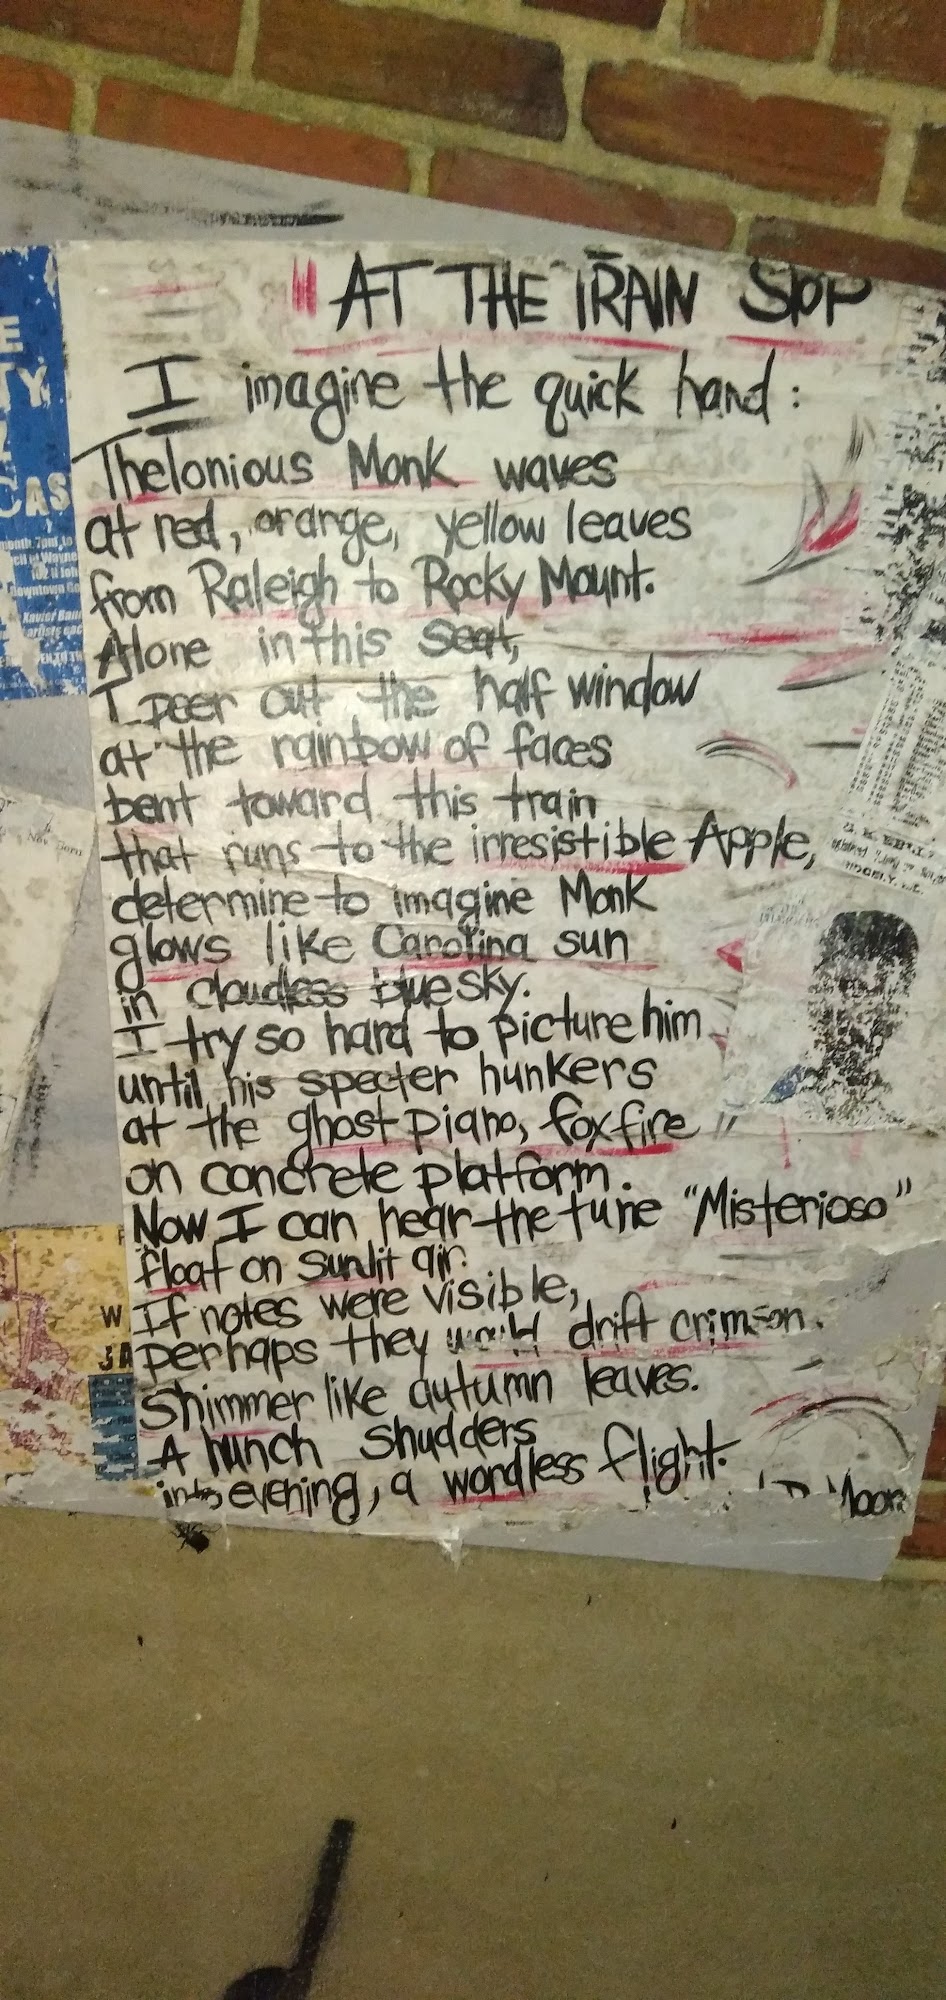 "AT THE TRAIN STOP
I imagine the quick hand:
Thelonious Monk waves
at red, orange, yellow leaves
from Raleigh to Rocky Mount.
Alone in this seat,
I peer out the half window
at the rainbow of faces
bent toward this train
that runs to the irresistible Apple,
determine to imagine Monk
glows like Carolina sun
in cloudless blue sky.
I try so hard to picture him
until his specter hunkers
at the ghost piano, foxfire
on concrete platform.
Now I can hear the tune "Misterioso"
float on sunlit air.
If notes were visible,
perhaps they would drift crimson.
Shimmer like autumn leaves.
A hunch shudders
into evening, a wordless flight.
E
TY
CAS
month, 7pm, to
cil of Wayne
102 N Joh
Downtown Go
Xavier Ban
artists eac
W
JA